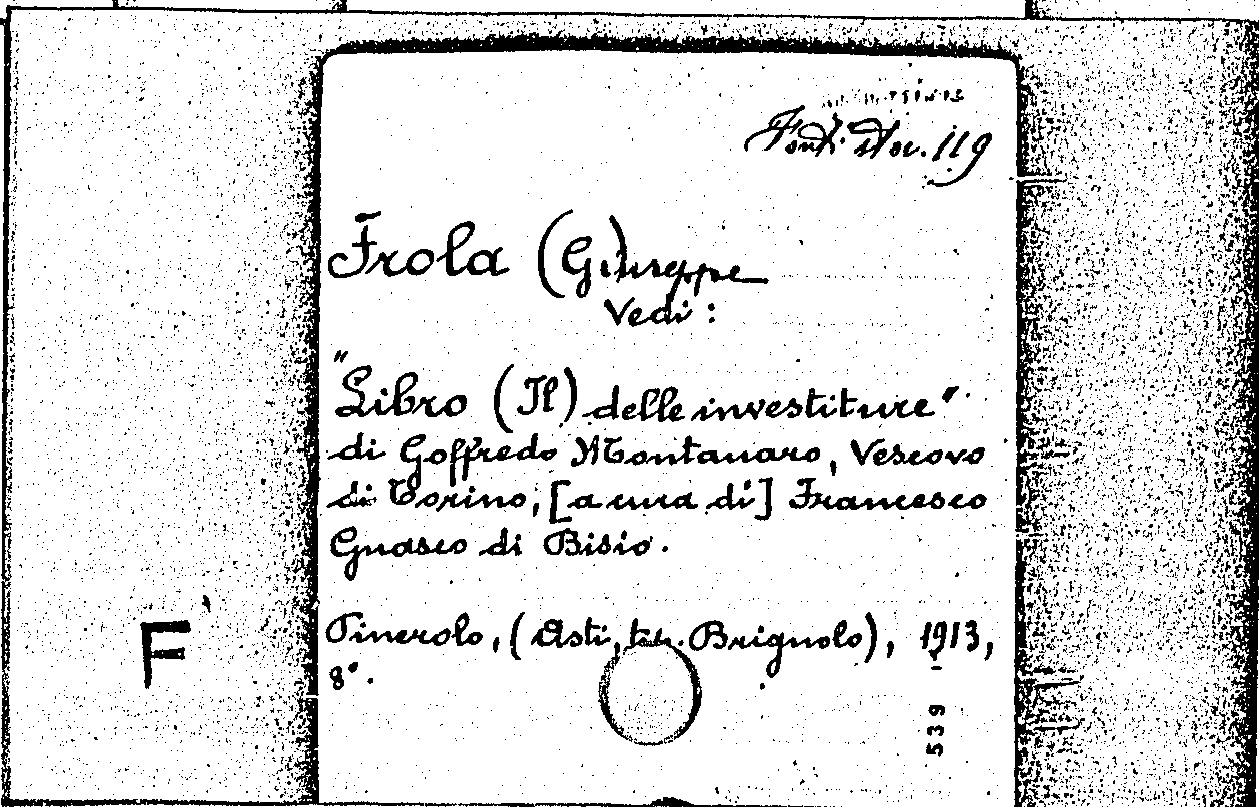 Fonti Doc. 119
Frola (Giuseppe
Vedi :
"Libro (Il) delle investiture"
di Goffredo Montanaro, Vescovo
di Torino, [a cura di] Francesco
Guasco di Bisio.
Pinerolo, (Asti, tip. Brignolo), 1913,
8°.
F
539